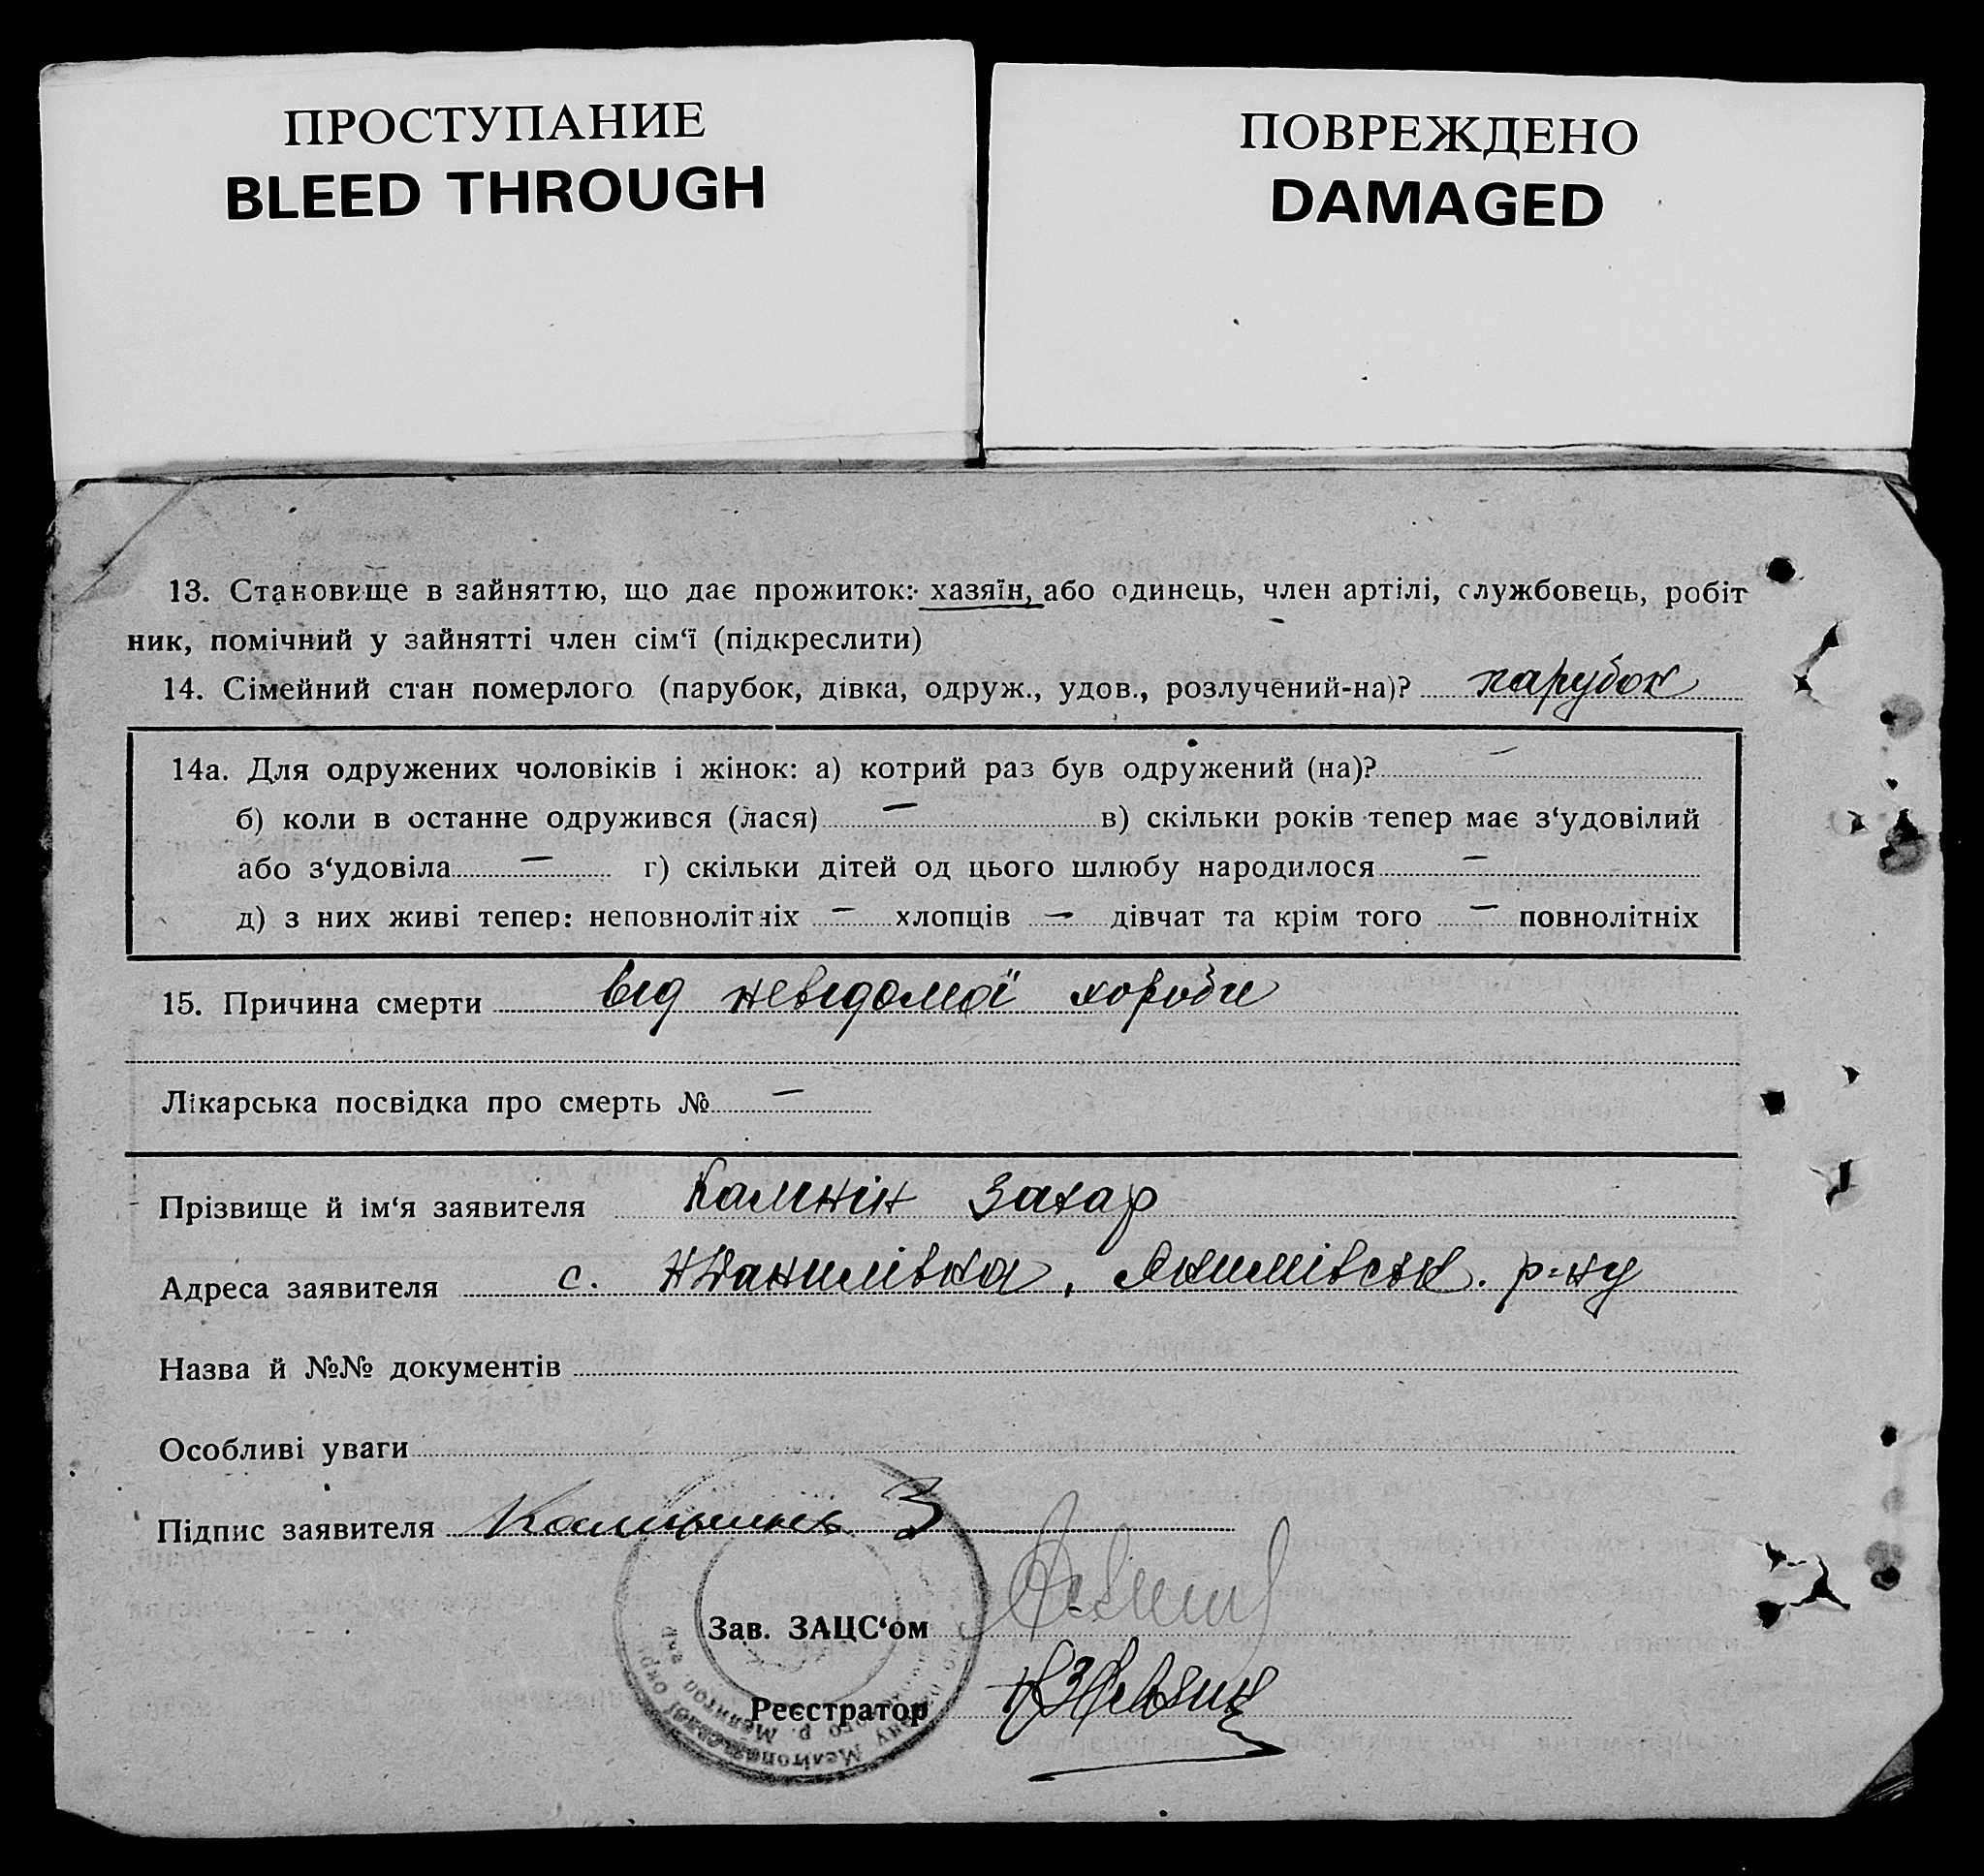 ПРОСТУПАНИЕ
BLEED THROUGH
ПОВРЕЖДЕНО
DAMAGED
13. Становище в зайняттю, що дає прожиток: хазяїн, або одинець, член артілі, службовець, робіт
ник, помічний у зайнятті член сім‘ї (підкреслити)
14. Сімейний стан померлого (парубок, дівка, одруж., удов., розлучений-на)? парубок
14а. Для одружених чоловіків і жінок: а) котрий раз був одружений (на)? —
б) коли в останне одружився (лася) — в) скільки років тепер має з‘удовілий
або з‘удовіла — г) скільки дітей од цього шлюбу народилося —
д) з них живі тепер: неповнолітніх — хлопців — дівчат та крім того — повнолітніх
15. Причина смерти від невідомої хороби
Лікарська посвідка про смерть № —
Прізвище й ім‘я заявителя Камнін Захар
Адреса заявителя с. Данилівка, Якимівськ. р-ну
Назва й №№ документів
Особливі уваги
Підпис заявителя З
Зав. ЗАЦС‘ом
Реєстратор